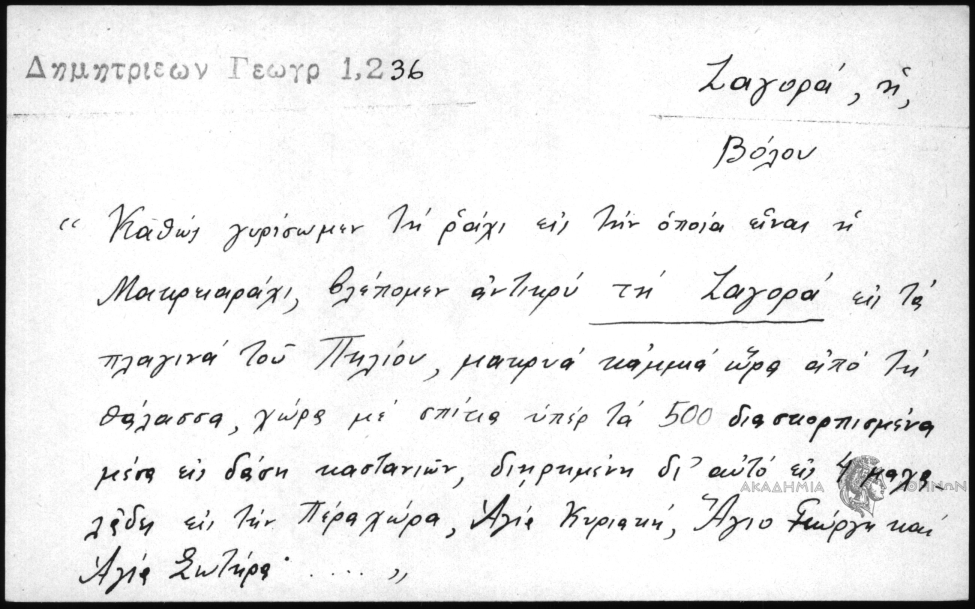 Δημητριεων Γεωγρ 1,236
Ζαγορά, ἡ,
Βόλου
“ Καθώς γυρίσωμεν τή ῥάχι εἰς τήν ὁποία εἶναι ἡ
Μακρειαράχι, βλέπομεν ἀντικρύ τή Ζαγορά εἰς τά
πλαγινά τοῦ Πηλίου, μακρυά κάμμιά ὥρα ἀπό τή
θάλασσα, χώρα μέ σπίτια ὑπέρ τά 500 διασκορπισμένα
μέσα εἰς δάση καστανιῶν, διῃρημένη δι' αὐτό εἰς 4 μαχα-
ΑΚΑΔΗΜΙΑ ΑΘΗΝΩΝ
λάδες εἰς τήν Πέραχώρα, Ἁγία Κυριακή, Ἅγιο Γεώργη καί
Ἁγία Σωτήρα ..... ”